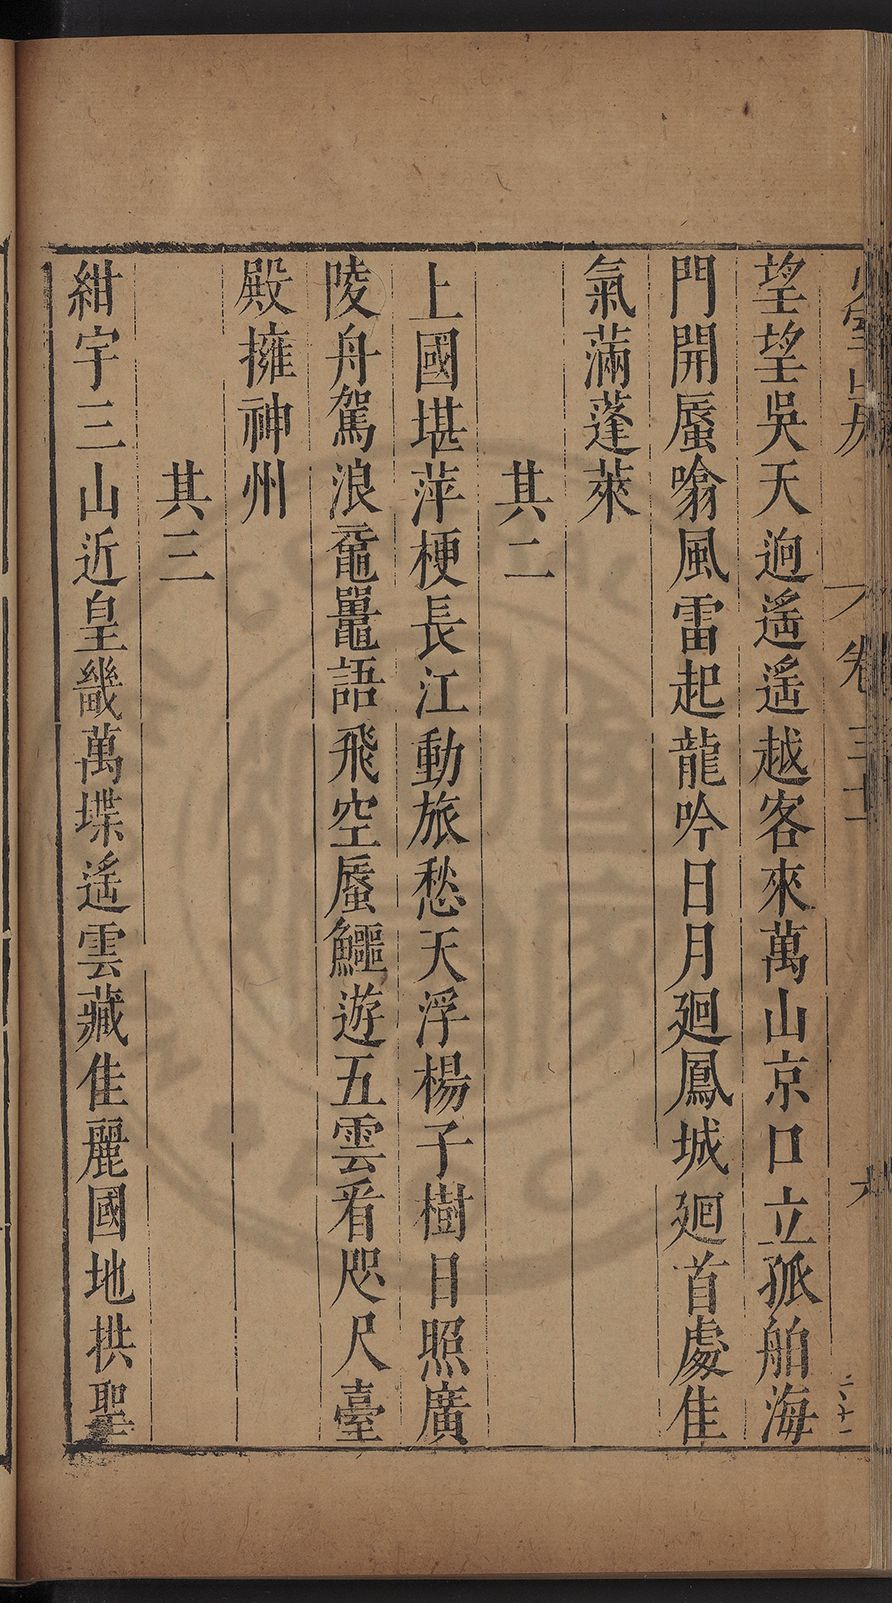 望望吳天逈遙遙越客來萬山京口立孤舶海
門開蜃噏風雷起龍吟日月廻鳳城廻首處佳
氣滿蓬萊
其二
上國堪萍梗長江動旅愁天浮楊子樹日照廣
陵舟駕浪黿鼉語飛空蜃鱷遊五雲看咫尺臺
殿擁神州
其三
紺宇三山近皇畿萬堞遙雲藏佳麗國地拱聖